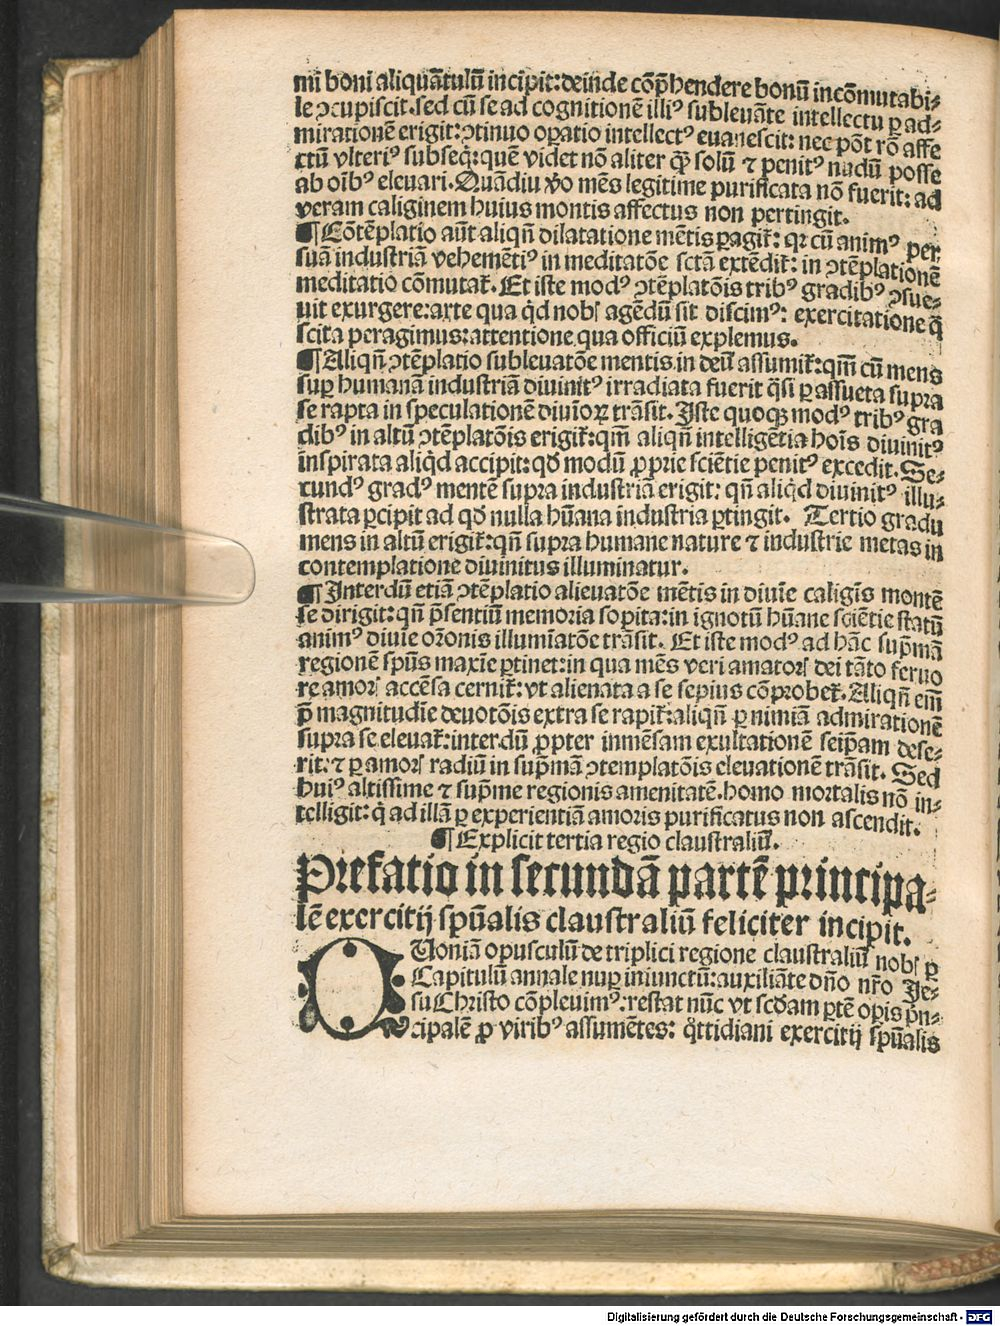 mi boni aliquãtulũ incipit: deinde cõp̃hendere bonũ incõmutabi⸗
le ↄcupiscit. sed cũ se ad cognitionẽ illiꝰ subleuãte intellectu ꝑ ad⸗
mirationẽ erigit: ↄtinuo oꝑatio intellectꝰ euanescit: nec põt rõ affe
ctũ vlteriꝰ subseq̃: quẽ videt nõ aliter q̃ꝫ solũ ⁊ penitꝰ nudũ posse
ab oĩbꝰ eleuari. Quãdiu v̓o mẽs legitime purificata nõ fuerit: ad
veram caliginem huius montis affectus non pertingit.
¶ Cõtẽplatio aũt aliqñ dilatatione mẽtis ꝑagit̃: qꝛ cũ animꝰ per
suã industriã vehemẽtiꝰ in meditatõe sctã extẽdit̃: in ↄtẽplationẽ
meditatio cõmutat̃. Et iste modꝰ ↄtẽplatõis tribꝰ gradibꝰ ↄsue⸗
uit exurgere: arte qua qd̓ nobꝭ agẽdũ sit discimꝰ: exercitatiõe q̃
scita peragimus: attentione qua officiũ explemus.
¶ Aliqñ ↄtẽplatio subleuatõe mentis in deũ assumit̃: qm̃ cũ mens
suꝑ humanã industriã diuinitꝰ irradiata fuerit q̃si ꝑ assueta supra
se rapta in speculationẽ diuioꝝ trãsit. Iste quoqꝫ modꝰ tribꝰ gra
dibꝰ in altũ ↄtẽplatõis erigit̃: qm̃ aliqñ intelligẽtia hoĩs diuinitꝰ
inspirata aliq̓d accipit: qd̓ modũ ꝓprie sciẽtie penitꝰ excedit. Se⸗
cundꝰ gradꝰ mentẽ supra industriã erigit: qñ aliq̓d diuinitꝰ illu⸗
strata ꝑcipit ad qd̓ nulla hũana industria ꝑtingit. Tertio gradu
mens in altũ erigit̃: qñ supra humane nature ⁊ industrie metas in
contemplatione diuinitus illuminatur.
¶ Interdũ etiã ↄtẽplatio alieuatõe mẽtis in diuĩe caligĩs montẽ
se dirigit: qñ p̃sentiũ memoria sopita: in ignotũ hũane sciẽtie statũ
animꝰ diuĩe oꝛõnis illumĩatõe trãsit. Et iste modꝰ ad hãc sup̃mã
regionẽ spũs maxĩe ꝑtinet: in qua mẽs veri amatorꝭ dei tãto feruo
re amorꝭ accẽsa cernit̃: vt alienata a se sepius cõprobet̃. Aliqñ em̃
p̃ magnitudĩe deuotõis extra se rapit̃: aliqñ ꝑ nimiã admirationẽ
supra se eleuat̃: interdũ ꝓpter inmẽsam exultationẽ seip̃am dese⸗
rit: ⁊ ꝑ amorꝭ radiũ in sup̃mã ↄtemplatõis eleuationẽ trãsit. Sed
huiꝰ altissime ⁊ sup̃me regionis amenitatẽ. homo mortalis nõ in⸗
telligit: q̓ ad illã ꝑ experientiã amoris purificatus non ascendit.
¶ Explicit tertia regio claustraliũ.
Prefatio in secundã partẽ principa⸗
lẽ exercitij spũalis claustraliũ feliciter incipit.
QUoniã opusculũ de triplici regione claustraliũ nobꝭ ꝑ
Capitulũ annale nuꝑ iniunctũ: auxiliãte dño nr̃o Je⸗
su Christo cõpleuimꝰ: restat nũc vt scd̓am ꝑtẽ oꝑis p̃n⸗
cipalẽ ꝓ viribꝰ assumẽtes: q̊ttidiani exercitij spũalis
Digitalisierung gefördert durch die Deutsche Forschungsgemeinschaft - DFG